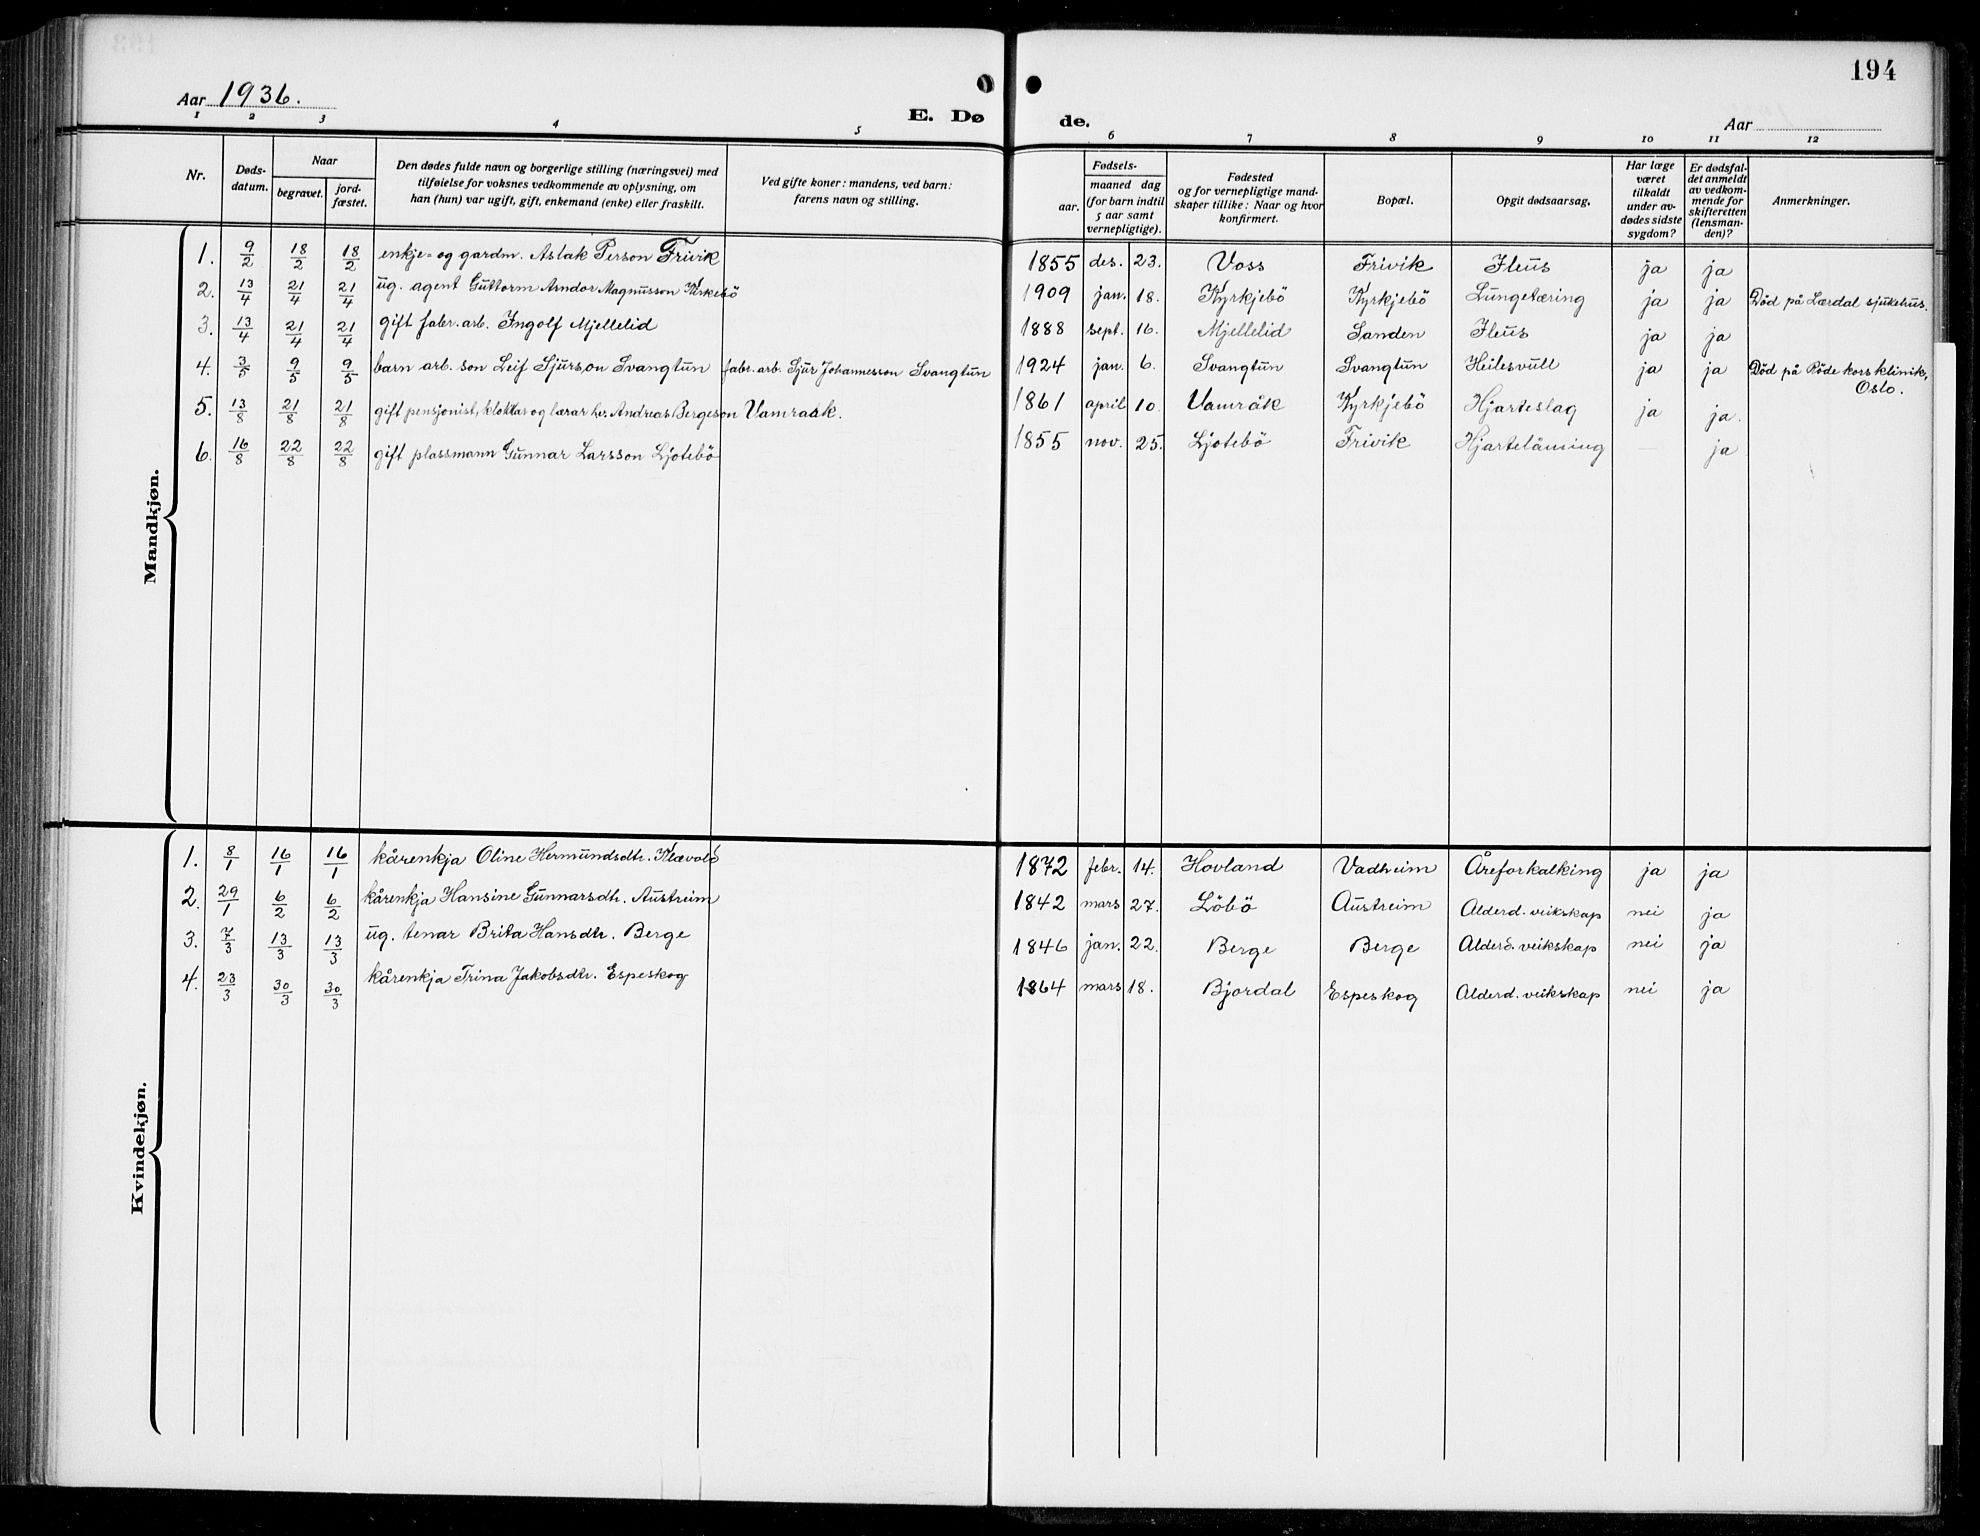 194
Aar 1936.
E. Døde.
Aar
1 2 3 4 5 6 7 8 9 10 11 12
Nr.
Døds-
datum.
Naar
begravet.
jord-
fæstet.
Den dødes fulde navn og borgerlige stilling (næringsvei) med
tilføielse for voksnes vedkommende av oplysning, om
han (hun) var ugift, gift, enkemand (enke) eller fraskilt.
Ved gifte koner: mandens, ved barn:
farens navn og stilling.
Fødsels-
aar.
maaned dag
(for barn indtil
5 aar samt
vernepligtige).
Fødested
og for vernepligtige mand-
skaper tillike: Naar og hvor
konfirmert.
Bopæl.
Opgit dødsaarsag.
Har læge
været
tilkaldt
under av-
dødes sidste
sygdom?
Er dødsfal-
det anmeldt
av vedkom-
mende for
skifteretten
(lensman-
den)?
Anmerkninger.
Mandkjøn.
1. 9/2 18/2 18/2 enkje- og gardm. Aslak Person Frivik 1855 des. 23. Voss Frivik Ileus ja ja
2. 13/4 21/4 21/4 ug. agent Guttorm Arndor Magnusson Kirkebö 1909 jan. 18. Kyrkjebö Kyrkjebö Lungetæring ja ja Död på Lærdal sjukehus.
3. 13/4 21/4 21/4 gift fabr. arb. Ingolf Mjellelid 1888 sept. 16. Mjellelid Sanden Ileus ja ja
4. 3/5 9/5 9/5 barn arb. son Leif Sjurson Svangtun fabr. arb. Sjur Johannesson Svangtun 1924 jan. 6. Svangtun Svangtun Heilesvull ja ja Död på Röde kors klinik,
Oslo.
5. 13/8 21/8 21/8 gift pensjonist, klokkar og lærar hr. Andreas Bergeson Vamraak. 1861 april 10. Vamråk Kyrkjebö Hjarteslag ja ja.
6. 16/8 22/8 22/8 gift plassmann Gunnar Larsson Ljotebö 1855 nov. 25. Ljotebö Frivik Hjartelåming — ja
Kvindekjøn.
1. 8/1 16/1 16/1 kårenkja Oline Hermundsdtr. Klævold 1872 febr. 14. Hovland Vadheim Åreforkalking ja ja
2. 29/1 6/2 6/2 kårenkja Hansine Gunnarsdtr. Austreim 1842 mars 27. Löbö Austreim Alderd. veikskap nei ja
3. 7/3 13/3 13/3 ug. tenar Brita Hansdtr. Berge 1846 jan. 22. Berge Berge Alderd. veikskap nei ja
4. 23/3 30/3 30/3 kårenkja Trina Jakobsdtr. Espeskog 1864 mars 18. Bjordal Espeskog Alderd. veikskap nei ja